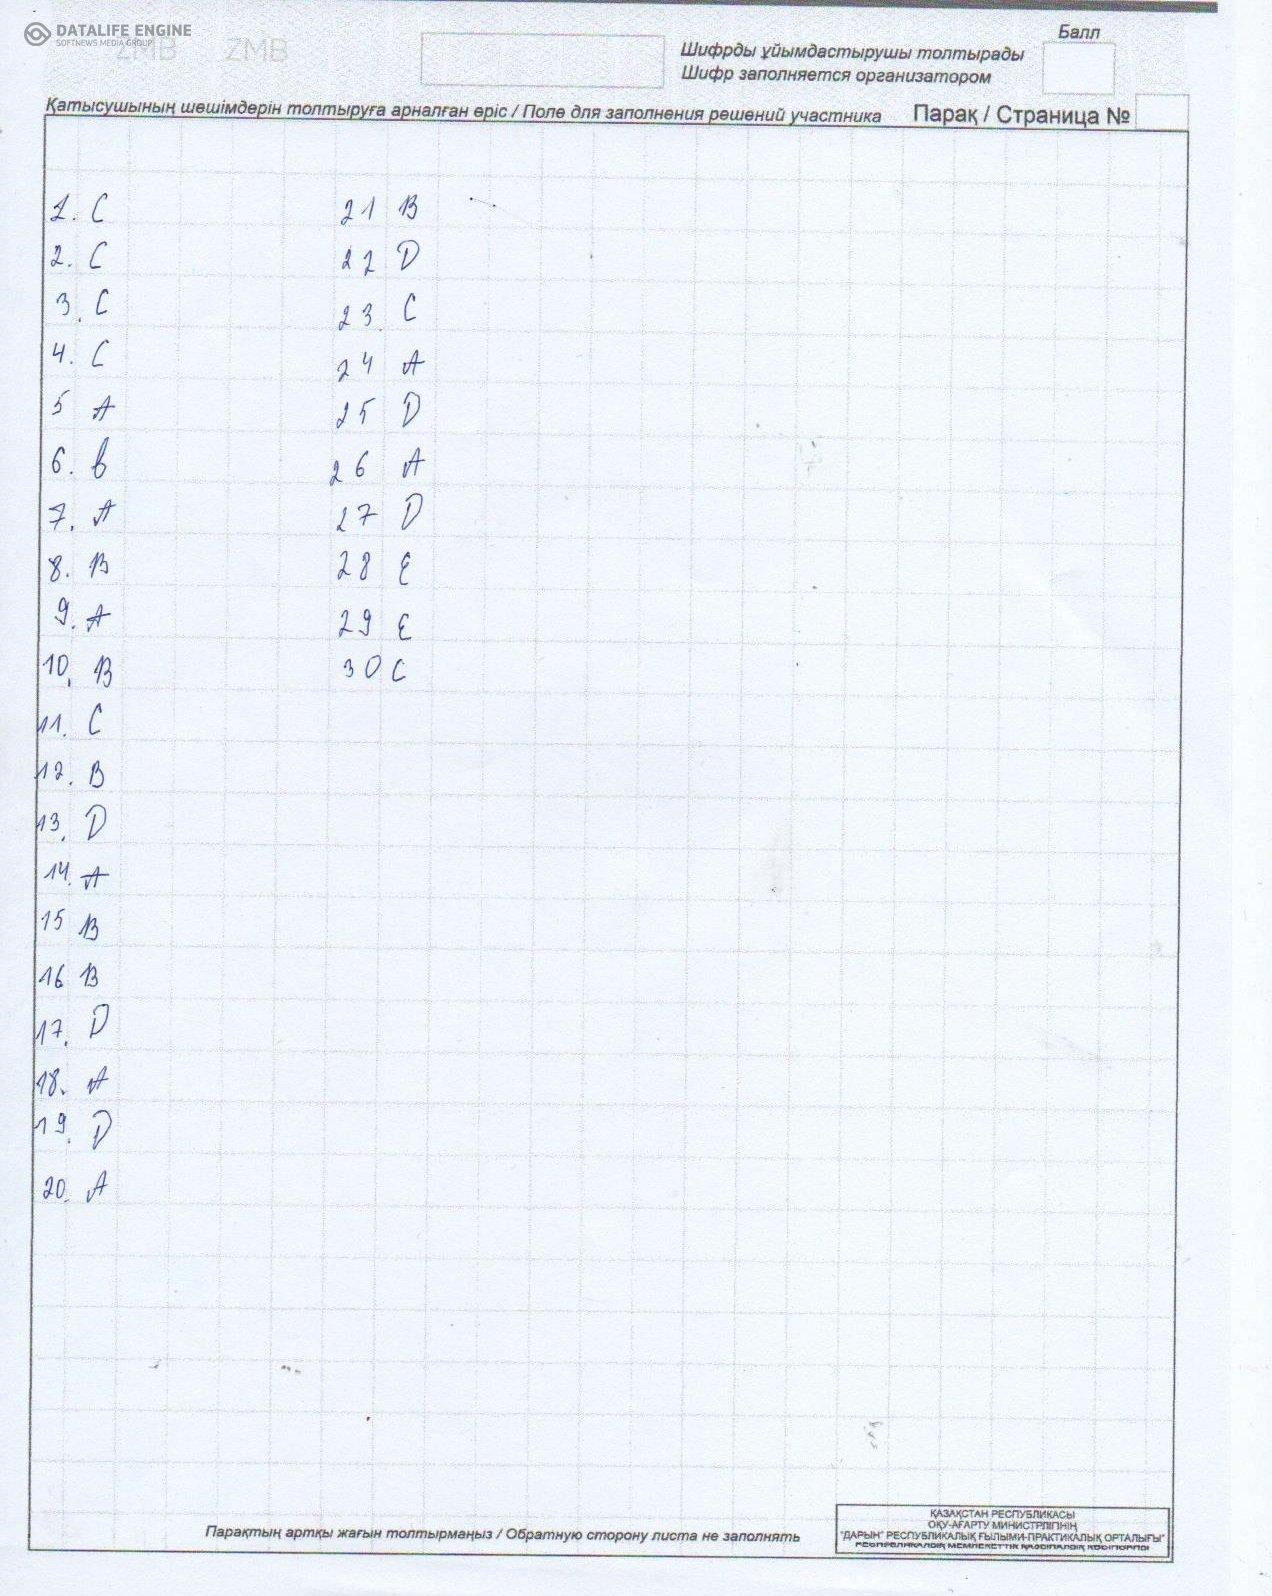 DATALIFE ENGINE
SOFTNEWS MEDIA GROUP
ZMB ZMB
Балл
Шифрды ұйымдастырушы толтырады
Шифр заполняется организатором
Қатысушының шешімдерін толтыруға арналған өріс / Поле для заполнения решений участника
Парақ / Страница №
1. C
2. C
3. C
4. C
5 A
6. B
7. A
8. B
9. A
10. B
11. C
12. B
13. D
14. A
15 B
16 B
17. D
18. A
19. D
20. A
21 B
22 D
23. C
24 A
25 D
26 A
27 D
28 E
29 E
30 C
Парақтың артқы жағын толтырмаңыз / Обратную сторону листа не заполнять
ҚАЗАҚСТАН РЕСПУБЛИКАСЫ
ОҚУ-АҒАРТУ МИНИСТРЛІГІНІҢ
"ДАРЫН" РЕСПУБЛИКАЛЫҚ ҒЫЛЫМИ-ПРАКТИКАЛЫҚ ОРТАЛЫҒЫ"
РЕСПУБЛИКАЛЫҚ МЕМЛЕКЕТТІК ҚАЗЫНАЛЫҚ КӘСІПОРНЫ